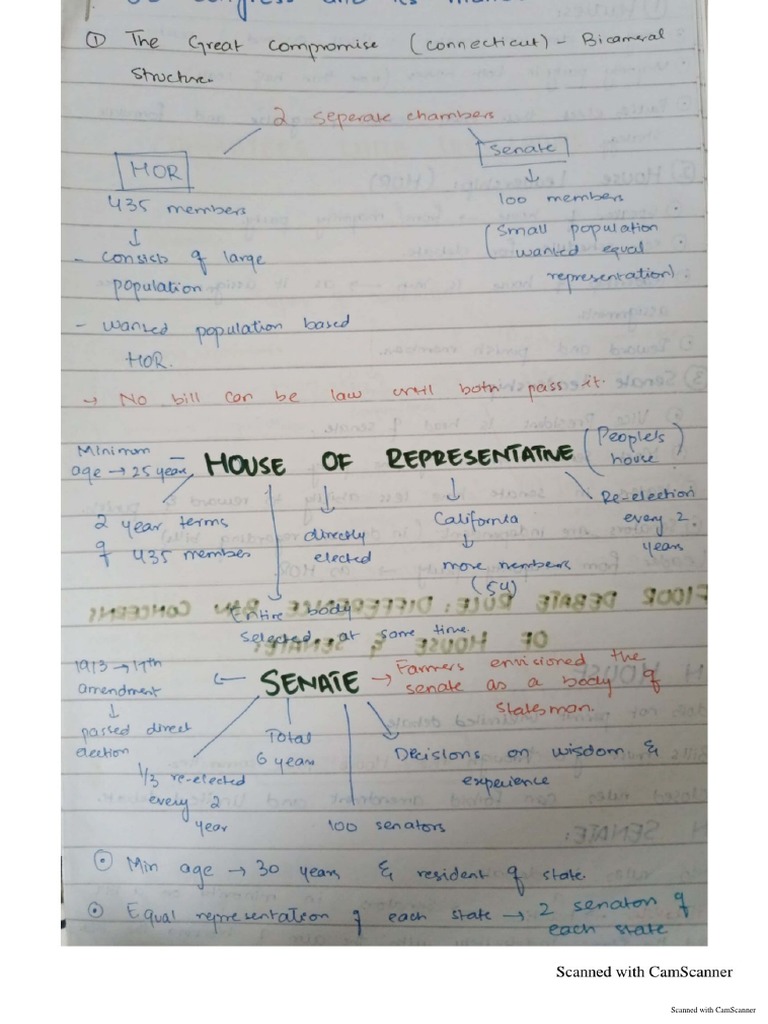 ① The Great compromise (connecticut) - Bicameral
structure.
2 seperate chambers
HOR
Senate
435 members
100 members
- consists of large
population
(small population
wanted equal
representation)
- wanted population based
HOR.
→ No bill can be law until both pass it.
Minimum
age → 25 year
HOUSE OF REPRESENTATIVE
(People's
house)
2 year terms
of 435 member
directly
elected
California
more members
(54)
Re-election
every 2
years
Entire body
selected at same time.
1913 → 17th
amendment
passed direct
election
SENATE
→ Farmers envisioned the
senate as a body of
statesman.
1/3 re-elected
every 2
year
Total
6 years
100 senators
Decisions on wisdom &
experience
⊙ Min age → 30 years & resident of state.
⊙ Equal representation of each state → 2 senators of
each state
Scanned with CamScanner
Scanned with CamScanner